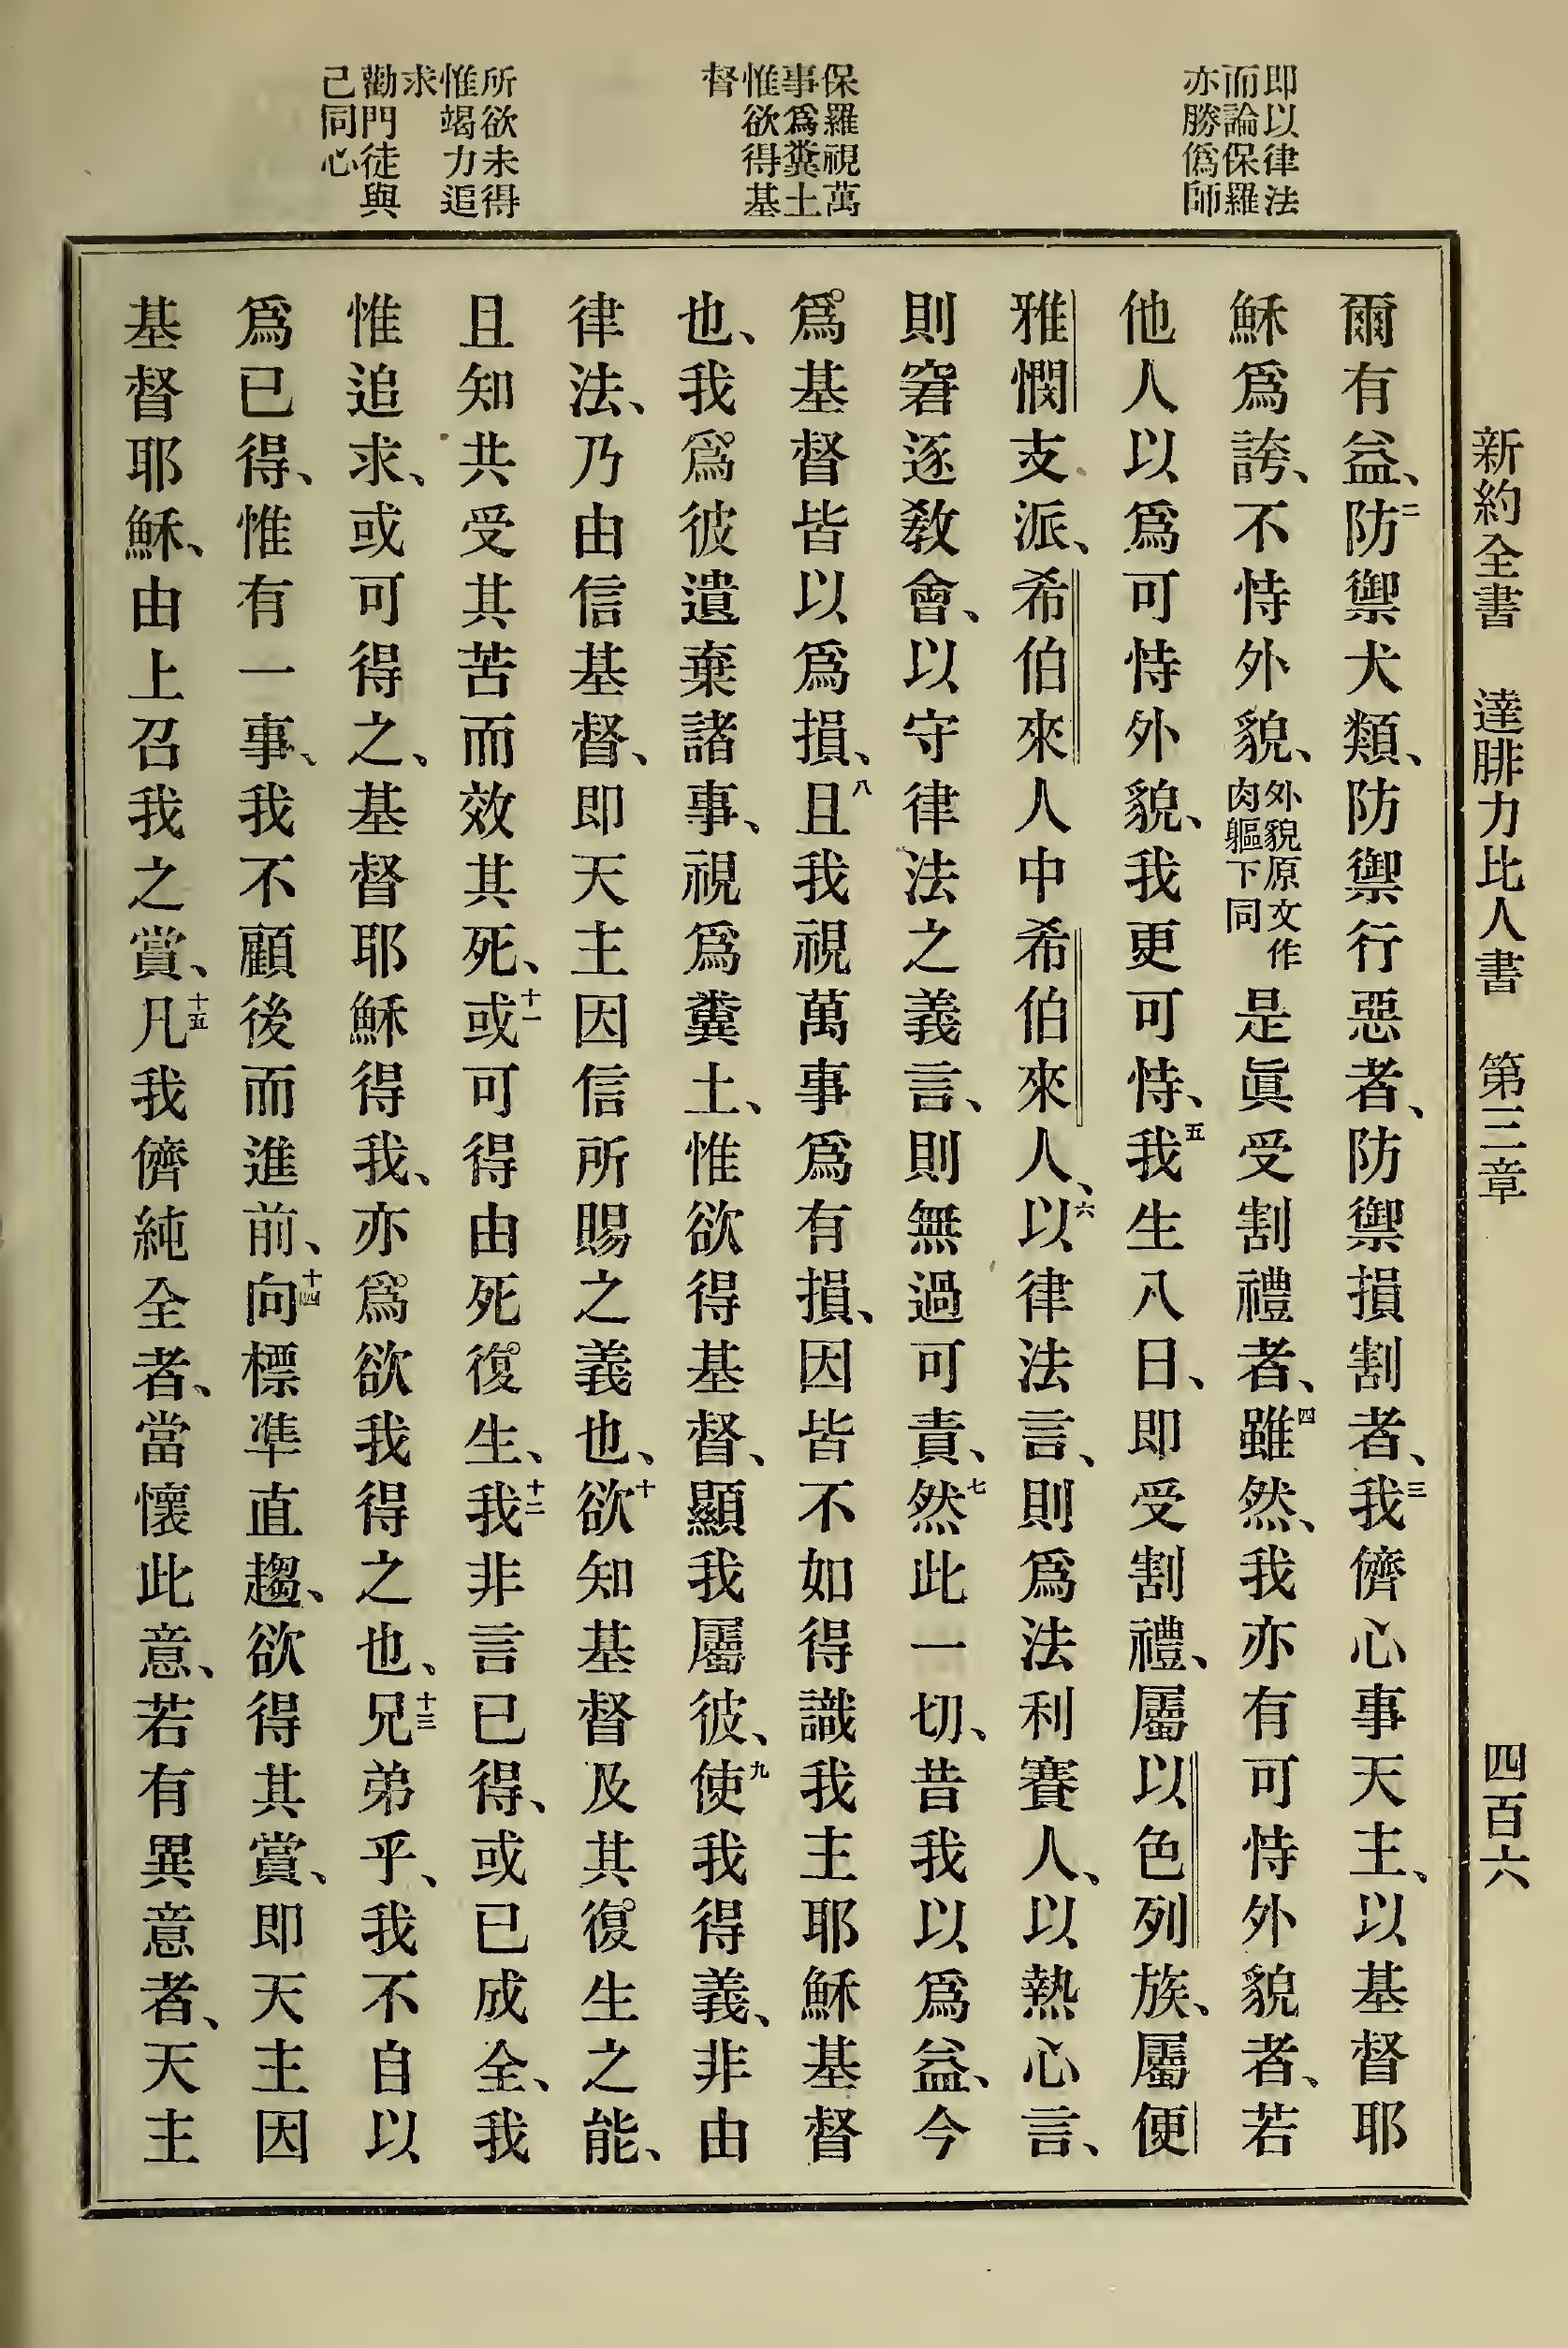 新約全書 達腓力比人書 第三章 四百六
即以律法
而論保羅
亦勝僞師
保羅視萬
事爲糞土
惟欲得基
督
所欲未得
惟竭力追
求
勸門徒與
己同心
爾有益、二防禦犬類、防禦行惡者、防禦損割者、三我儕心事天主、以基督耶
穌爲誇、不恃外貌、外貌原文作肉軀下同是眞受割禮者、四雖然、我亦有可恃外貌者、若
他人以爲可恃外貌、我更可恃、五我生八日、即受割禮、屬以色列族、屬便
雅憫支派、希伯來人中希伯來人、六以律法言、則爲法利賽人、以熱心言、
則窘逐敎會、以守律法之義言、則無過可責、七然此一切、昔我以爲益、今
爲基督皆以爲損、八且我視萬事爲有損、因皆不如得識我主耶穌基督
也、我爲彼遺棄諸事、視爲糞土、惟欲得基督、顯我屬彼、九使我得義、非由
律法、乃由信基督、即天主因信所賜之義也、十欲知基督及其復生之能、
且知共受其苦而效其死、十一或可得由死復生、十二我非言已得、或已成全、我
惟追求、或可得之、基督耶穌得我、亦爲欲我得之也、十三兄弟乎、我不自以
爲已得、惟有一事、我不顧後而進前、十四向標準直趨、欲得其賞、即天主因
基督耶穌、由上召我之賞、十五凡我儕純全者、當懷此意、若有異意者、天主